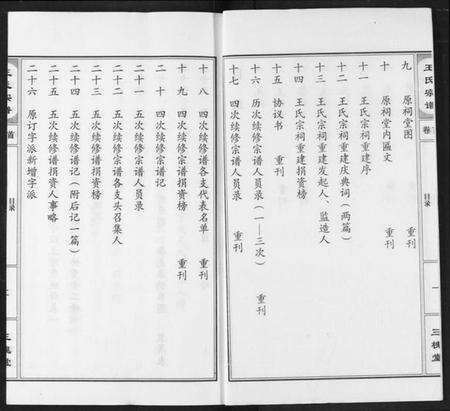 王氏宗谱
卷
目录
一
三槐堂
九 原祠堂图 重刊
十 原祠堂内匾文 重刊
十一 王氏宗祠重建序
十二 王氏宗祠重建庆典词（两篇）
十三 王氏宗祠重建发起人、监造人
十四 王氏宗祠重建捐资榜
十五 协议书 重刊
十六 历次续修宗谱人员录（一—三次） 重刊
十七 四次续修宗谱人员录 重刊
十八 四次续修谱各支代表名单 重刊
十九 四次续修宗谱捐资榜 重刊
二十 四次续修宗谱记
二十一 五次续修宗谱人员录
二十二 五次续修宗谱各支头召集人
二十三 五次续修谱捐资榜
二十四 五次续修谱记（附后记一篇）
二十五 五次续修谱捐资人事略
二十六 原订字派新增字派
首
目录
三槐堂